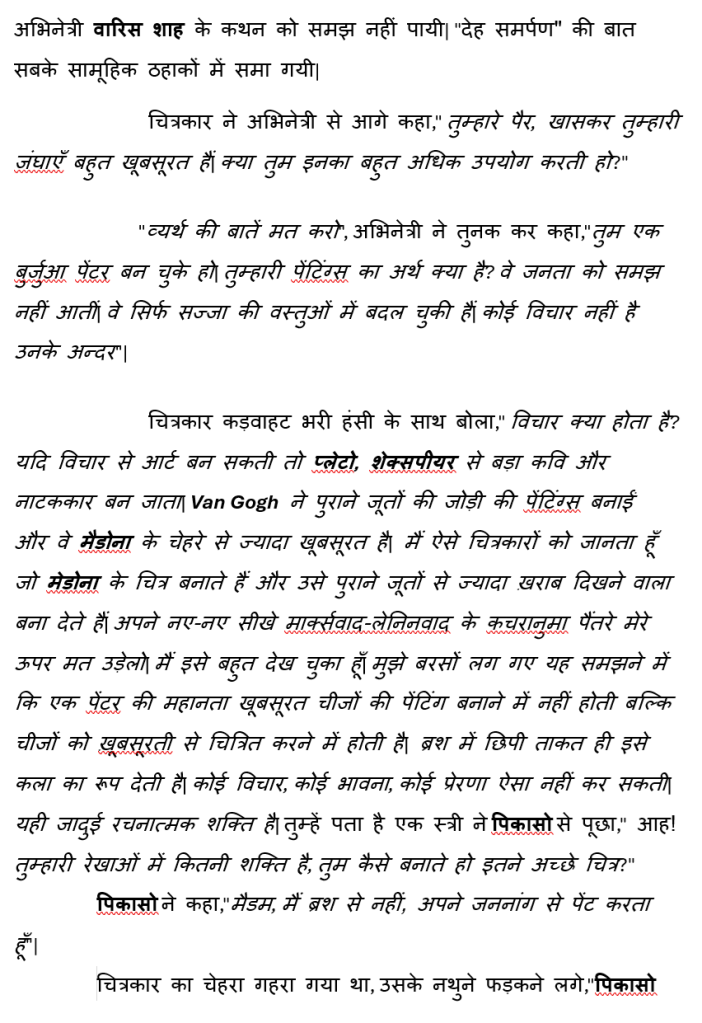 अभिनेत्री वारिस शाह के कथन को समझ नहीं पायी| "देह समर्पण" की बात
सबके सामूहिक ठहाकों में समा गयी|
चित्रकार ने अभिनेत्री से आगे कहा," तुम्हारे पैर, खासकर तुम्हारी
जंघाएँ बहुत खूबसूरत हैं| क्या तुम इनका बहुत अधिक उपयोग करती हो?"
"व्यर्थ की बातें मत करो", अभिनेत्री ने तुनक कर कहा,"तुम एक
बुर्जुआ पेंटर बन चुके हो| तुम्हारी पेंटिंग्स का अर्थ क्या है? वे जनता को समझ
नहीं आतीं| वे सिर्फ सज्जा की वस्तुओं में बदल चुकी हैं| कोई विचार नहीं है
उनके अन्दर"|
चित्रकार कड़वाहट भरी हंसी के साथ बोला," विचार क्या होता है?
यदि विचार से आर्ट बन सकती तो प्लेटो, शेक्सपीयर से बड़ा कवि और
नाटककार बन जाता| Van Gogh ने पुराने जूतों की जोड़ी की पेंटिंग्स बनाईं
और वे मैडोना के चेहरे से ज्यादा खूबसूरत है| मैं ऐसे चित्रकारों को जानता हूँ
जो मेडोना के चित्र बनाते हैं और उसे पुराने जूतों से ज्यादा ख़राब दिखने वाला
बना देते हैं| अपने नए-नए सीखे मार्क्सवाद-लेनिनवाद के कचरानुमा पैंतरे मेरे
ऊपर मत उड़ेलो| मैं इसे बहुत देख चुका हूँ| मुझे बरसों लग गए यह समझने में
कि एक पेंटर की महानता खूबसूरत चीजों की पेंटिंग बनाने में नहीं होती बल्कि
चीजों को खूबसूरती से चित्रित करने में होती है| ब्रश में छिपी ताकत ही इसे
कला का रूप देती है| कोई विचार, कोई भावना, कोई प्रेरणा ऐसा नहीं कर सकती|
यही जादुई रचनात्मक शक्ति है| तुम्हें पता है एक स्त्री ने पिकासो से पूछा," आह!
तुम्हारी रेखाओं में कितनी शक्ति है, तुम कैसे बनाते हो इतने अच्छे चित्र?"
पिकासो ने कहा,"मैडम, मैं ब्रश से नहीं, अपने जननांग से पेंट करता
हूँ"|
चित्रकार का चेहरा गहरा गया था, उसके नथुने फड़कने लगे,"पिकासो